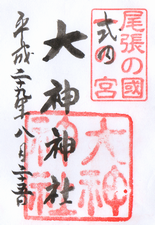 尾張の國
式内
宮
大神神社
平成二十九年八月二十五日
大神
神社